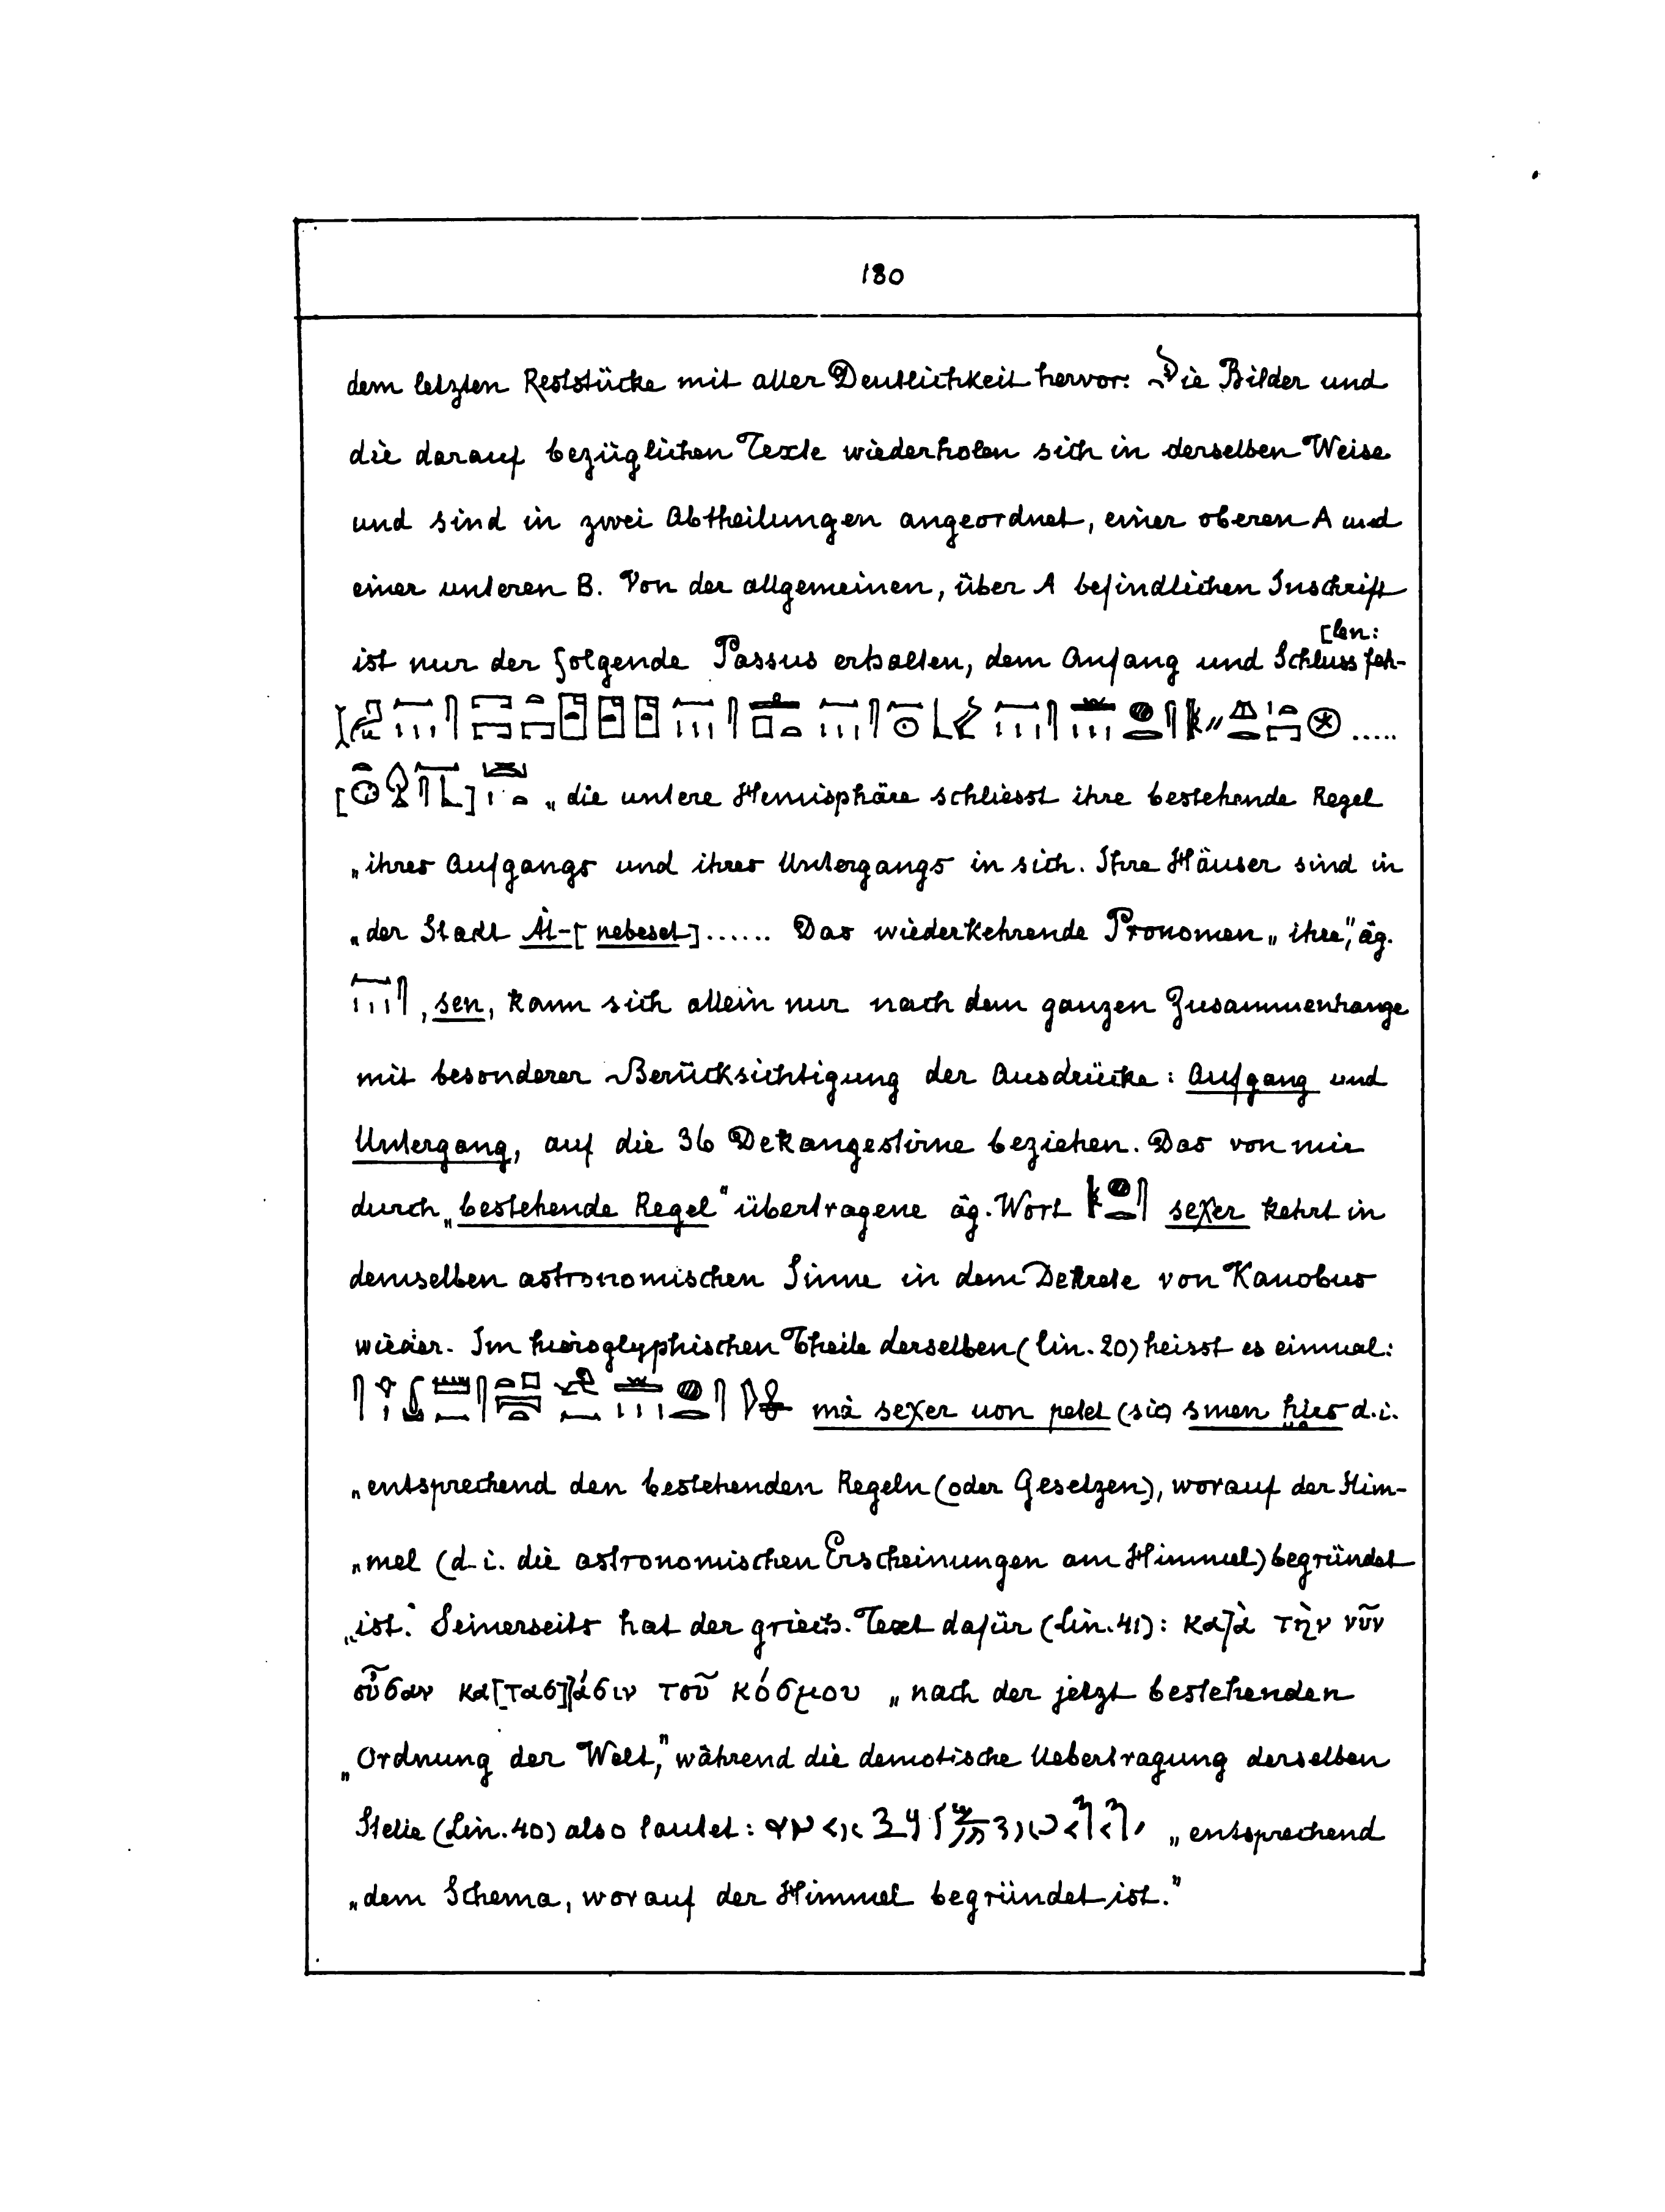 180
dem letzten Reststücke mit aller Deutlichkeit hervor. Die Bilder und
die darauf bezüglichen Texte wiederholen sich in derselben Weise
und sind in zwei Abtheilungen angeordnet, einer oberen A und
einer unteren B. Von der allgemeinen, über A befindlichen Inschrift
[len:
ist nur der folgende Passus erhalten, dem Anfang und Schluss feh-
.....
[ ] „die untere Hemisphäre schliesst ihre bestehende Regel
„ihres Aufgangs und ihres Untergangs in sich. Ihre Häuser sind in
„der Stadt Ȧt-[nebeset]...... Das wiederkehrende Pronomen „ihre", äg.
, sen, kann sich allein nur nach dem ganzen Zusammenhange
mit besonderer Berücksichtigung der Ausdrücke: Aufgang und
Untergang, auf die 36 Dekangestirne beziehen. Das von mir
durch „bestehende Regel" übertragene äg. Wort seχer kehrt in
demselben astronomischen Sinne in dem Dekrete von Kanobus
wieder. Im hieroglyphischen Theile derselben (lin. 20) heisst es einmal:
mȧ seχer uon petet (sic) smen ḥies d.i.
„entsprechend den bestehenden Regeln (oder Gesetzen), worauf der Him-
„mel (d.i. die astronomischen Erscheinungen am Himmel) begründet
„ist." Seinerseits hat der griech. Text dafür (Lin. 41): κατὰ τὴν νῦν
οὖσαν κα[τασ]τάσιν τοῦ κόσμου „nach der jetzt bestehenden
„Ordnung der Welt," während die demotische Uebertragung derselben
Stelle (Lin. 40) also lautet: „entsprechend
„dem Schema, worauf der Himmel begründet ist."